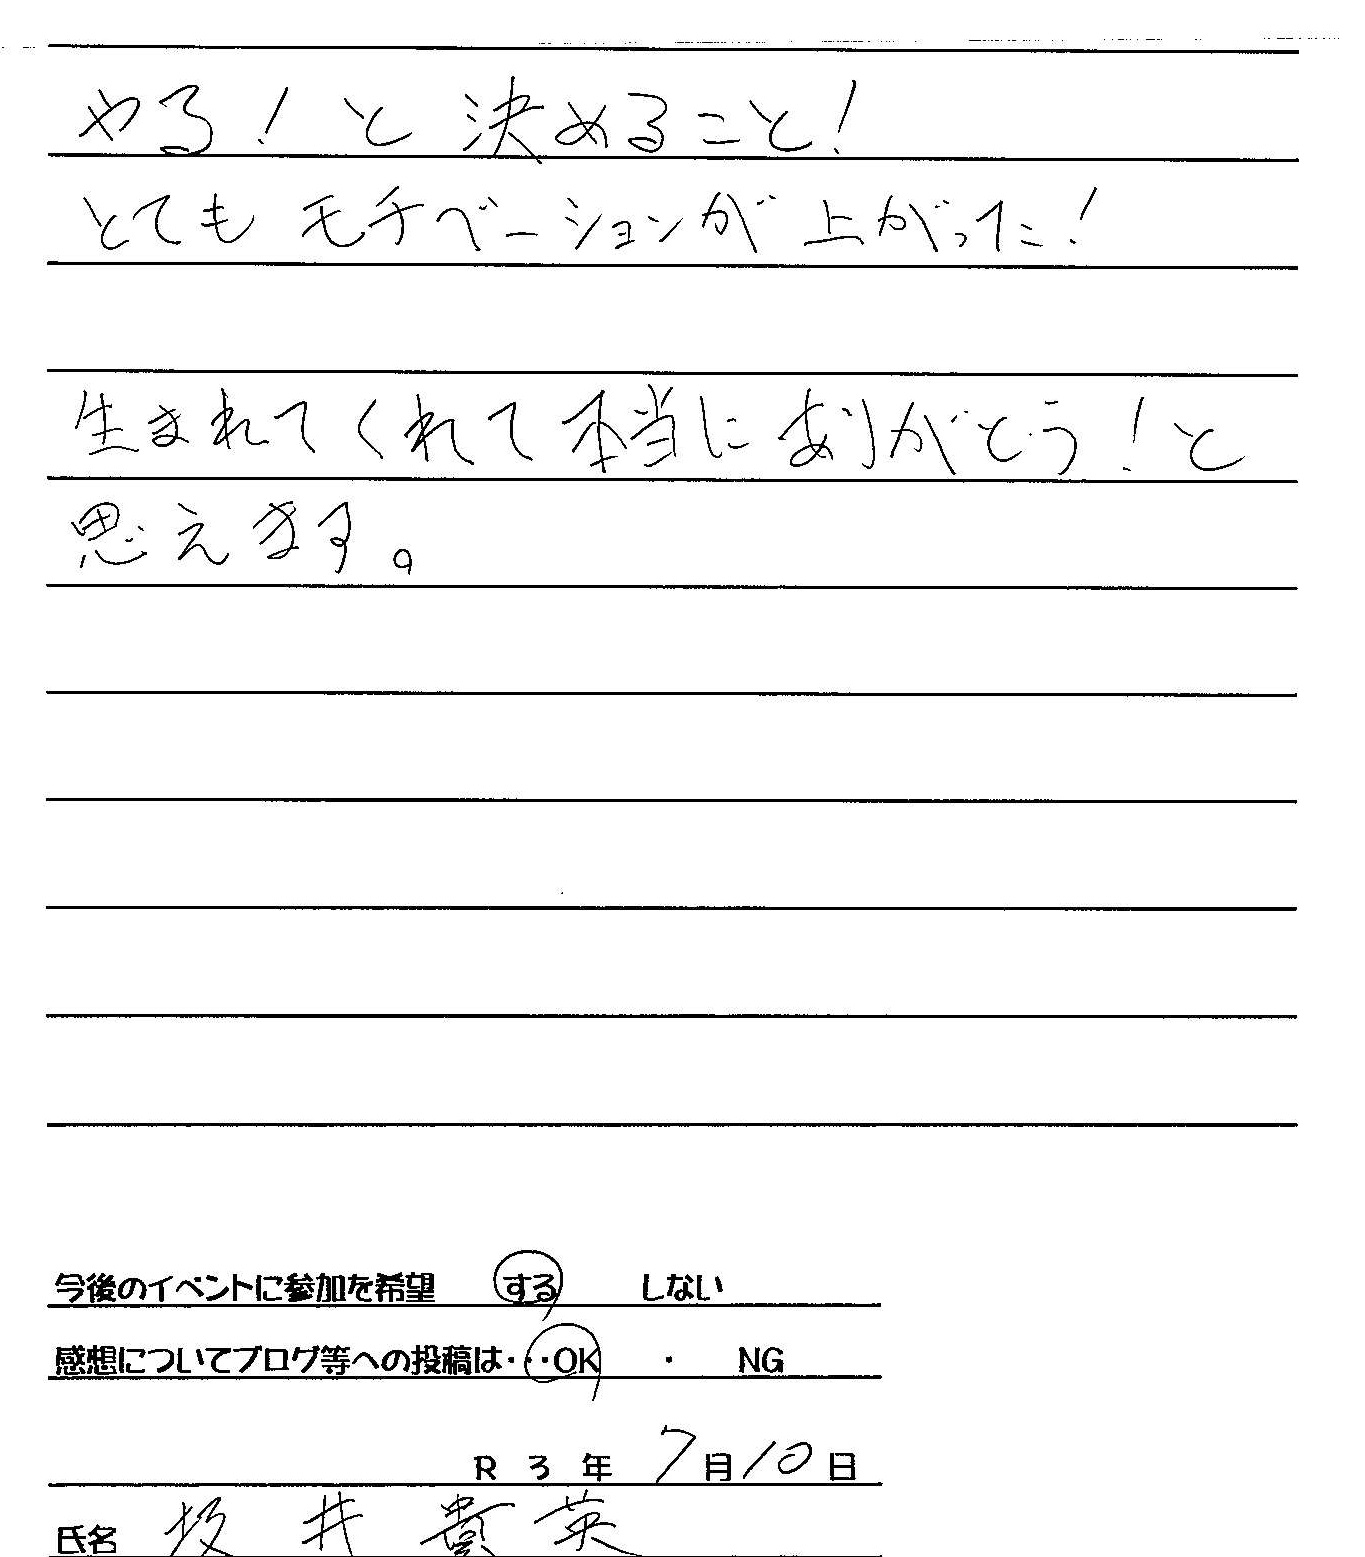 やる！と決めること！
とてもモチベーションが上がった！
生まれてくれて本当にありがとう！と
思えます。
今後のイベントに参加を希望 する しない
感想についてブログ等への投稿は・・・OK ・ NG
R 3 年 7月10日
氏名 坂井 貴英